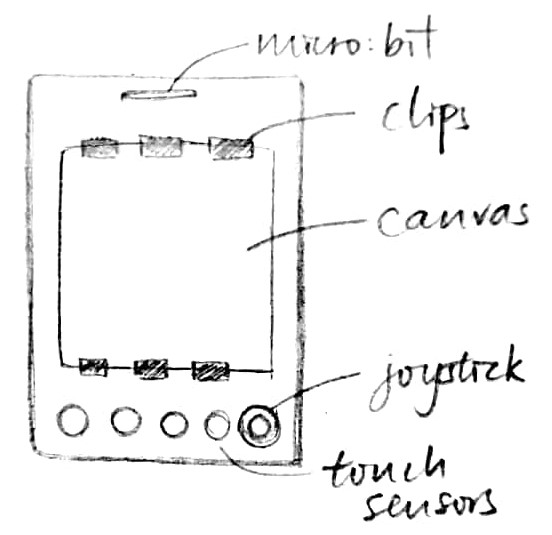 micro:bit
clips
canvas
joystick
touch
sensors